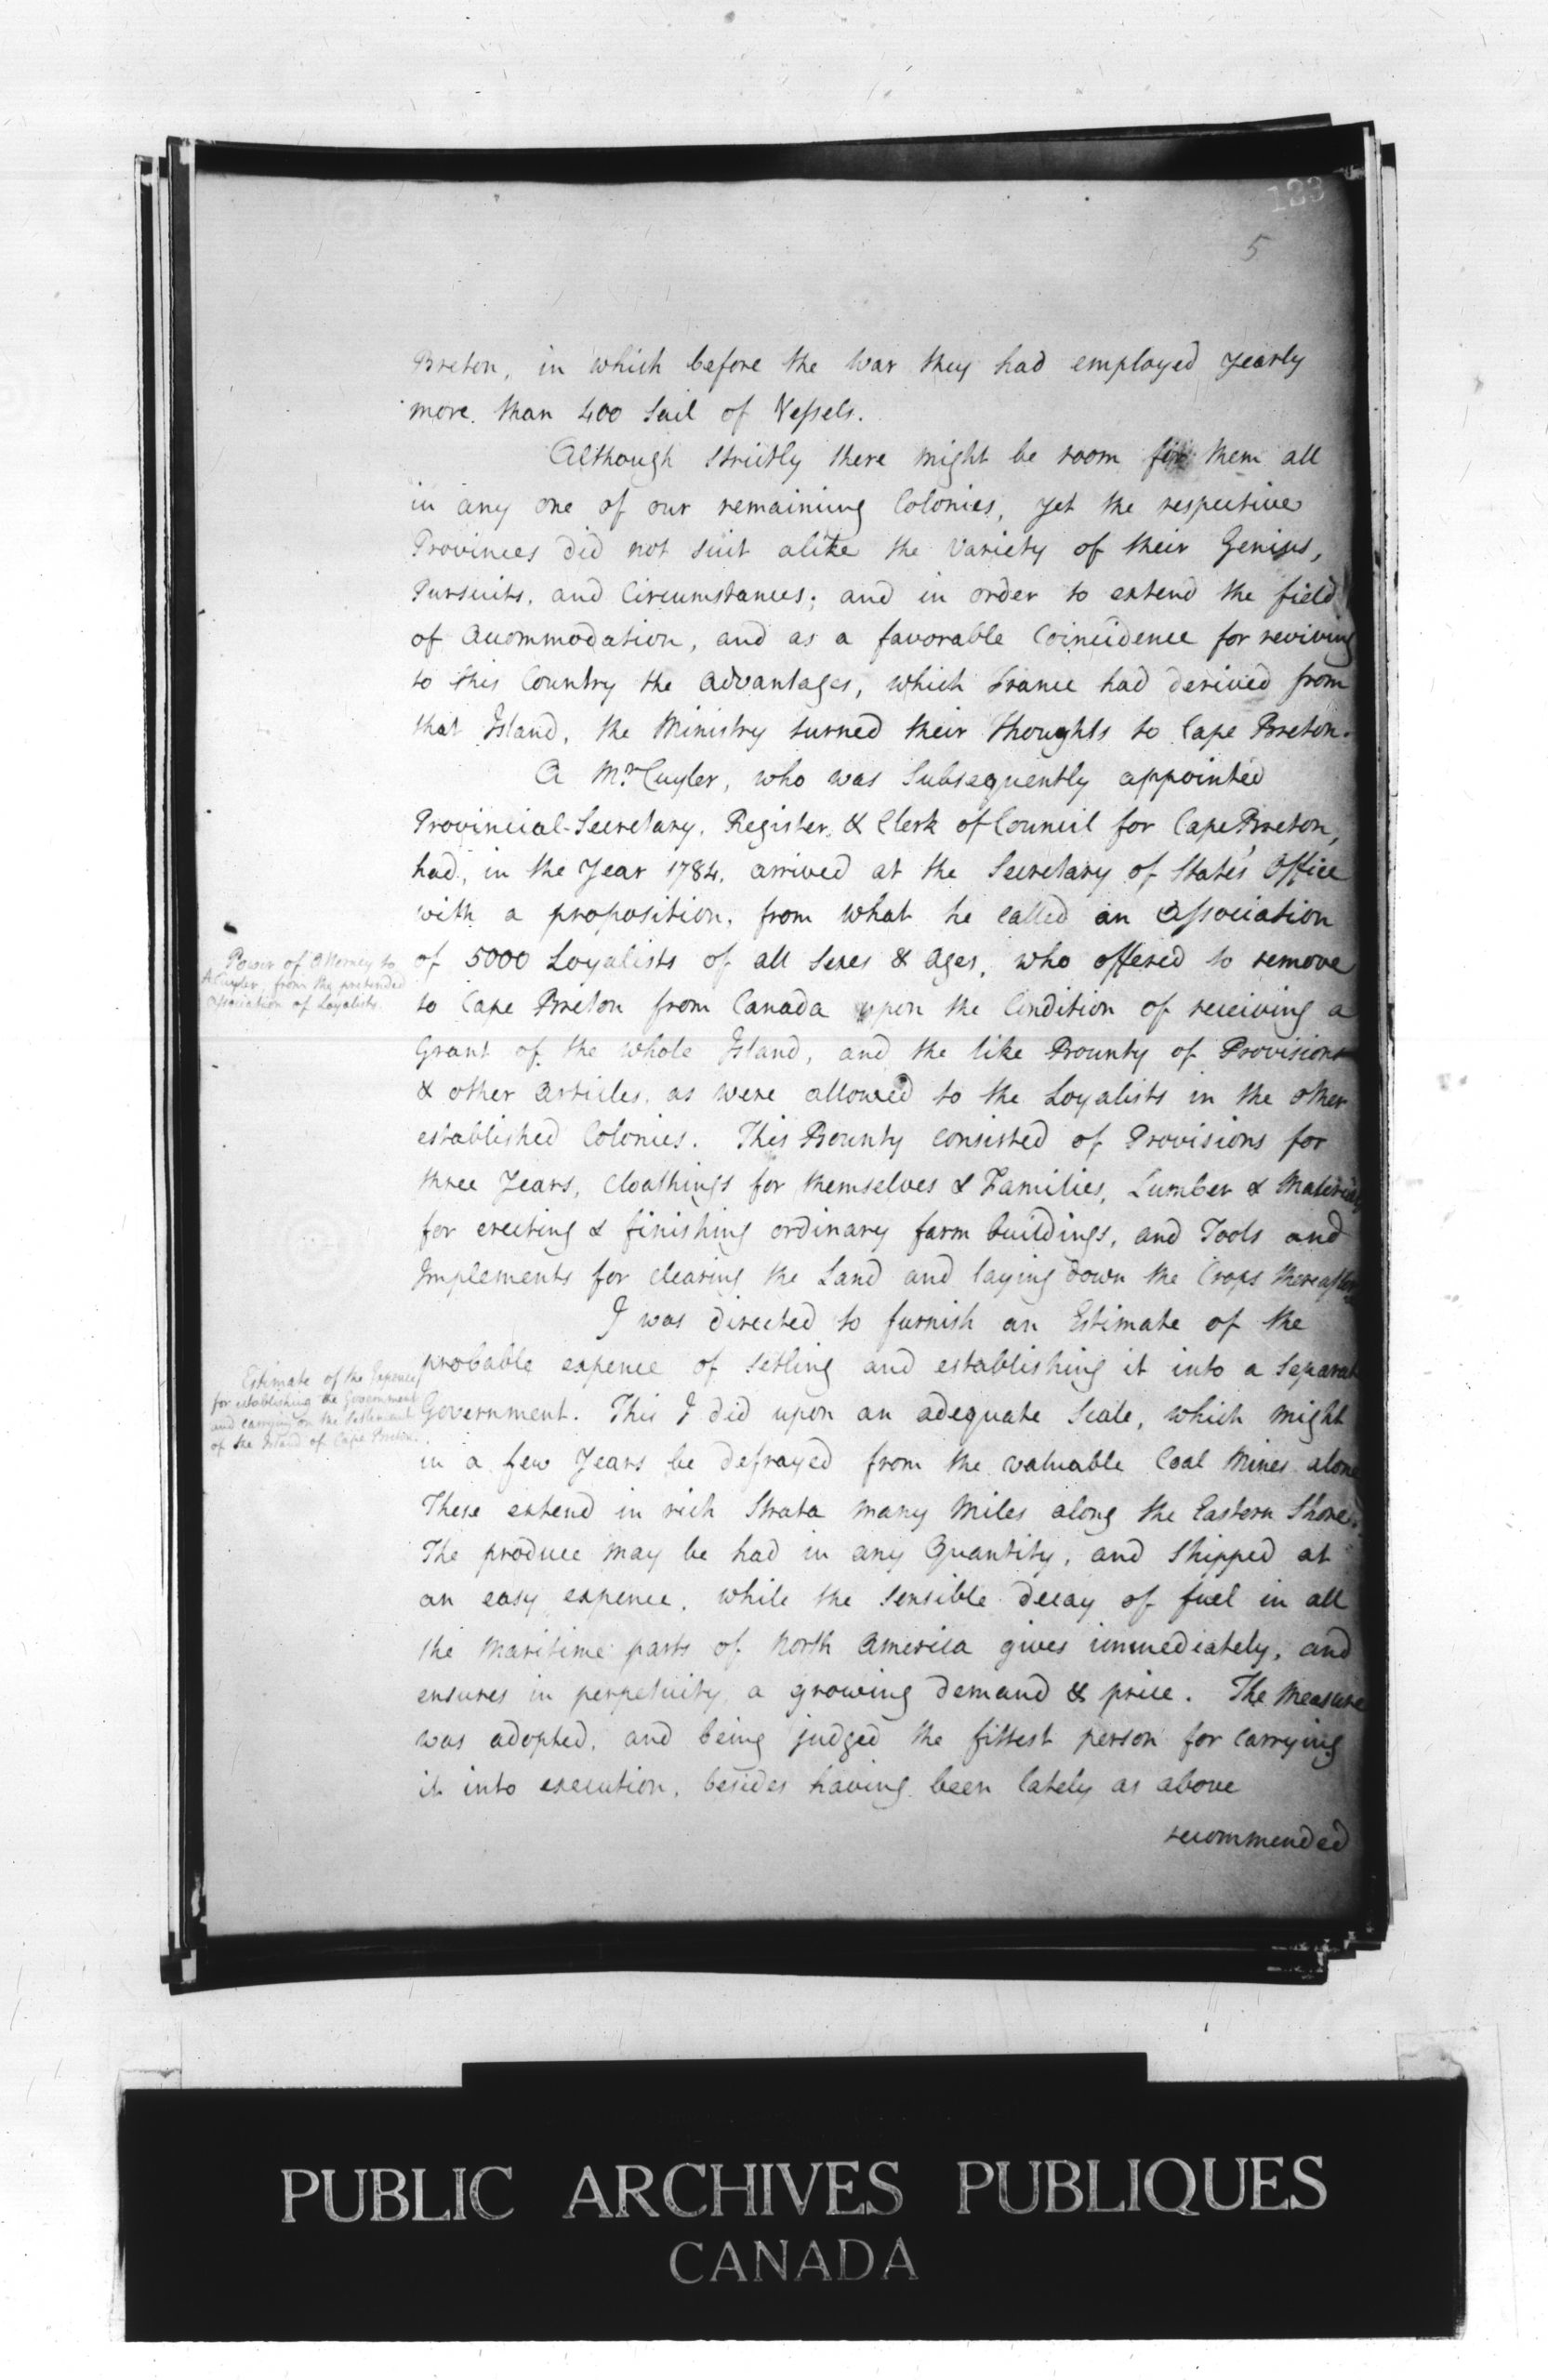 123
5
Breton, in which before the War they had employed yearly
more than 400 Sail of Vessels.
Although strictly there might be room for them all
in any one of our remaining Colonies, yet the respective
Provinces did not suit alike the Variety of their Genius,
Pursuits, and Circumstances; and in order to extend the field
of Accommodation, and as a favorable Coincidence for reviving
to this Country the Advantages, which France had derived from
that Island, the Ministry turned their thoughts to Cape Breton.
A Mr. Cuyler, who was Subsequently appointed
Provincial-Secretary, Register, & Clerk of Council for Cape Breton,
had, in the Year 1784, arrived at the Secretary of State's Office
with a proposition, from what he called an Association
Power of Attorney to
A Cuyler, from the pretended
Association of Loyalists.
of 5000 Loyalists of all Sexes & Ages, who offered to remove
to Cape Breton from Canada upon the Condition of receiving a
Grant of the whole Island, and the like Bounty of Provisions
& other Articles, as were allowed to the Loyalists in the other
established Colonies. This Bounty consisted of Provisions for
three Years, Cloathings for themselves & Families, Lumber & Materials
for erecting & finishing ordinary farm buildings, and Tools and
Implements for clearing the Land and laying down the Crops thereafter
I was directed to furnish an Estimate of the
Estimate of the Expence
for establishing the Government
and carrying on the Settlement
of the Island of Cape Breton.
probable expence of setling and establishing it into a separate
Government. This I did upon an adequate Scale, which might
in a few Years be defrayed from the valuable Coal Mines alone
These extend in rich Strata many Miles along the Eastern Shore.
The produce may be had in any Quantity, and Shipped at
an easy expence, while the sensible decay of fuel in all
the Maritime parts of North America gives immediately, and
ensures in perpetuity, a growing demand & price. The Measure
was adopted, and being judged the fittest person for carrying
it into execution, besides having been lately as above
recommended
PUBLIC ARCHIVES PUBLIQUES
CANADA